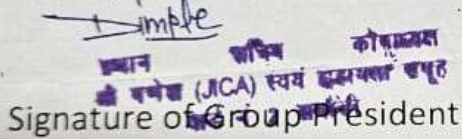 Dimple
प्रधान सचिव कोषाध्यक्ष
श्री गणेश (JICA) स्वयं सहायता समूह
Signature of Group President